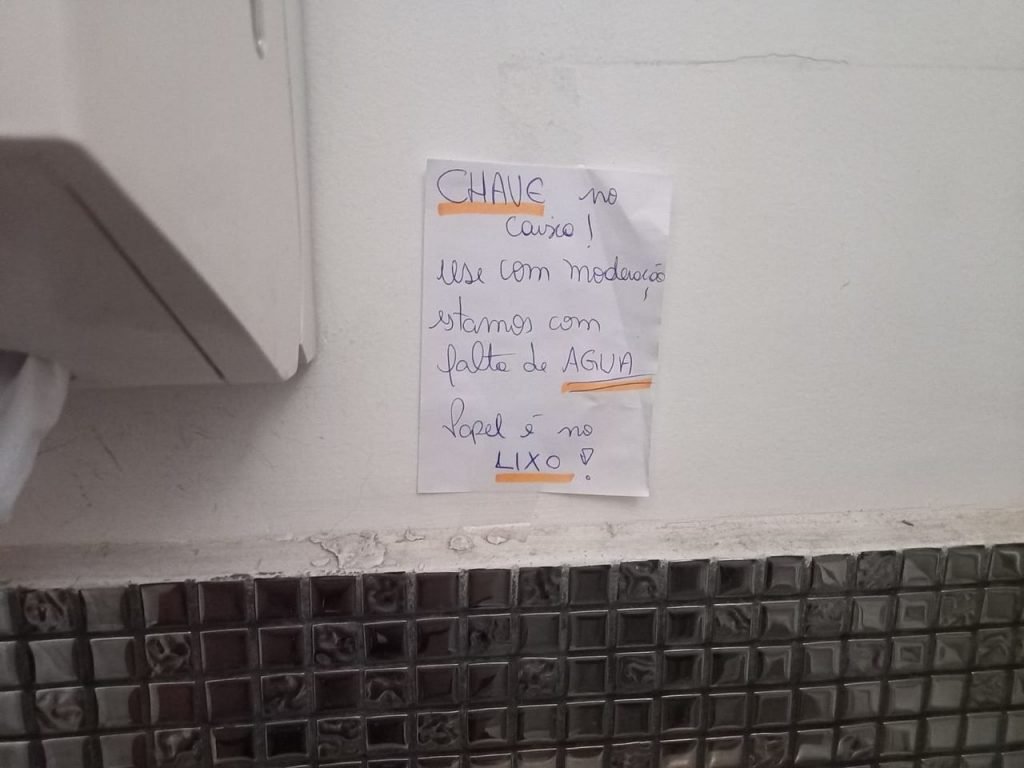 CHAVE no
caixa!
use com moderação
estamos com
falta de AGUA
Papel é no
LIXO!